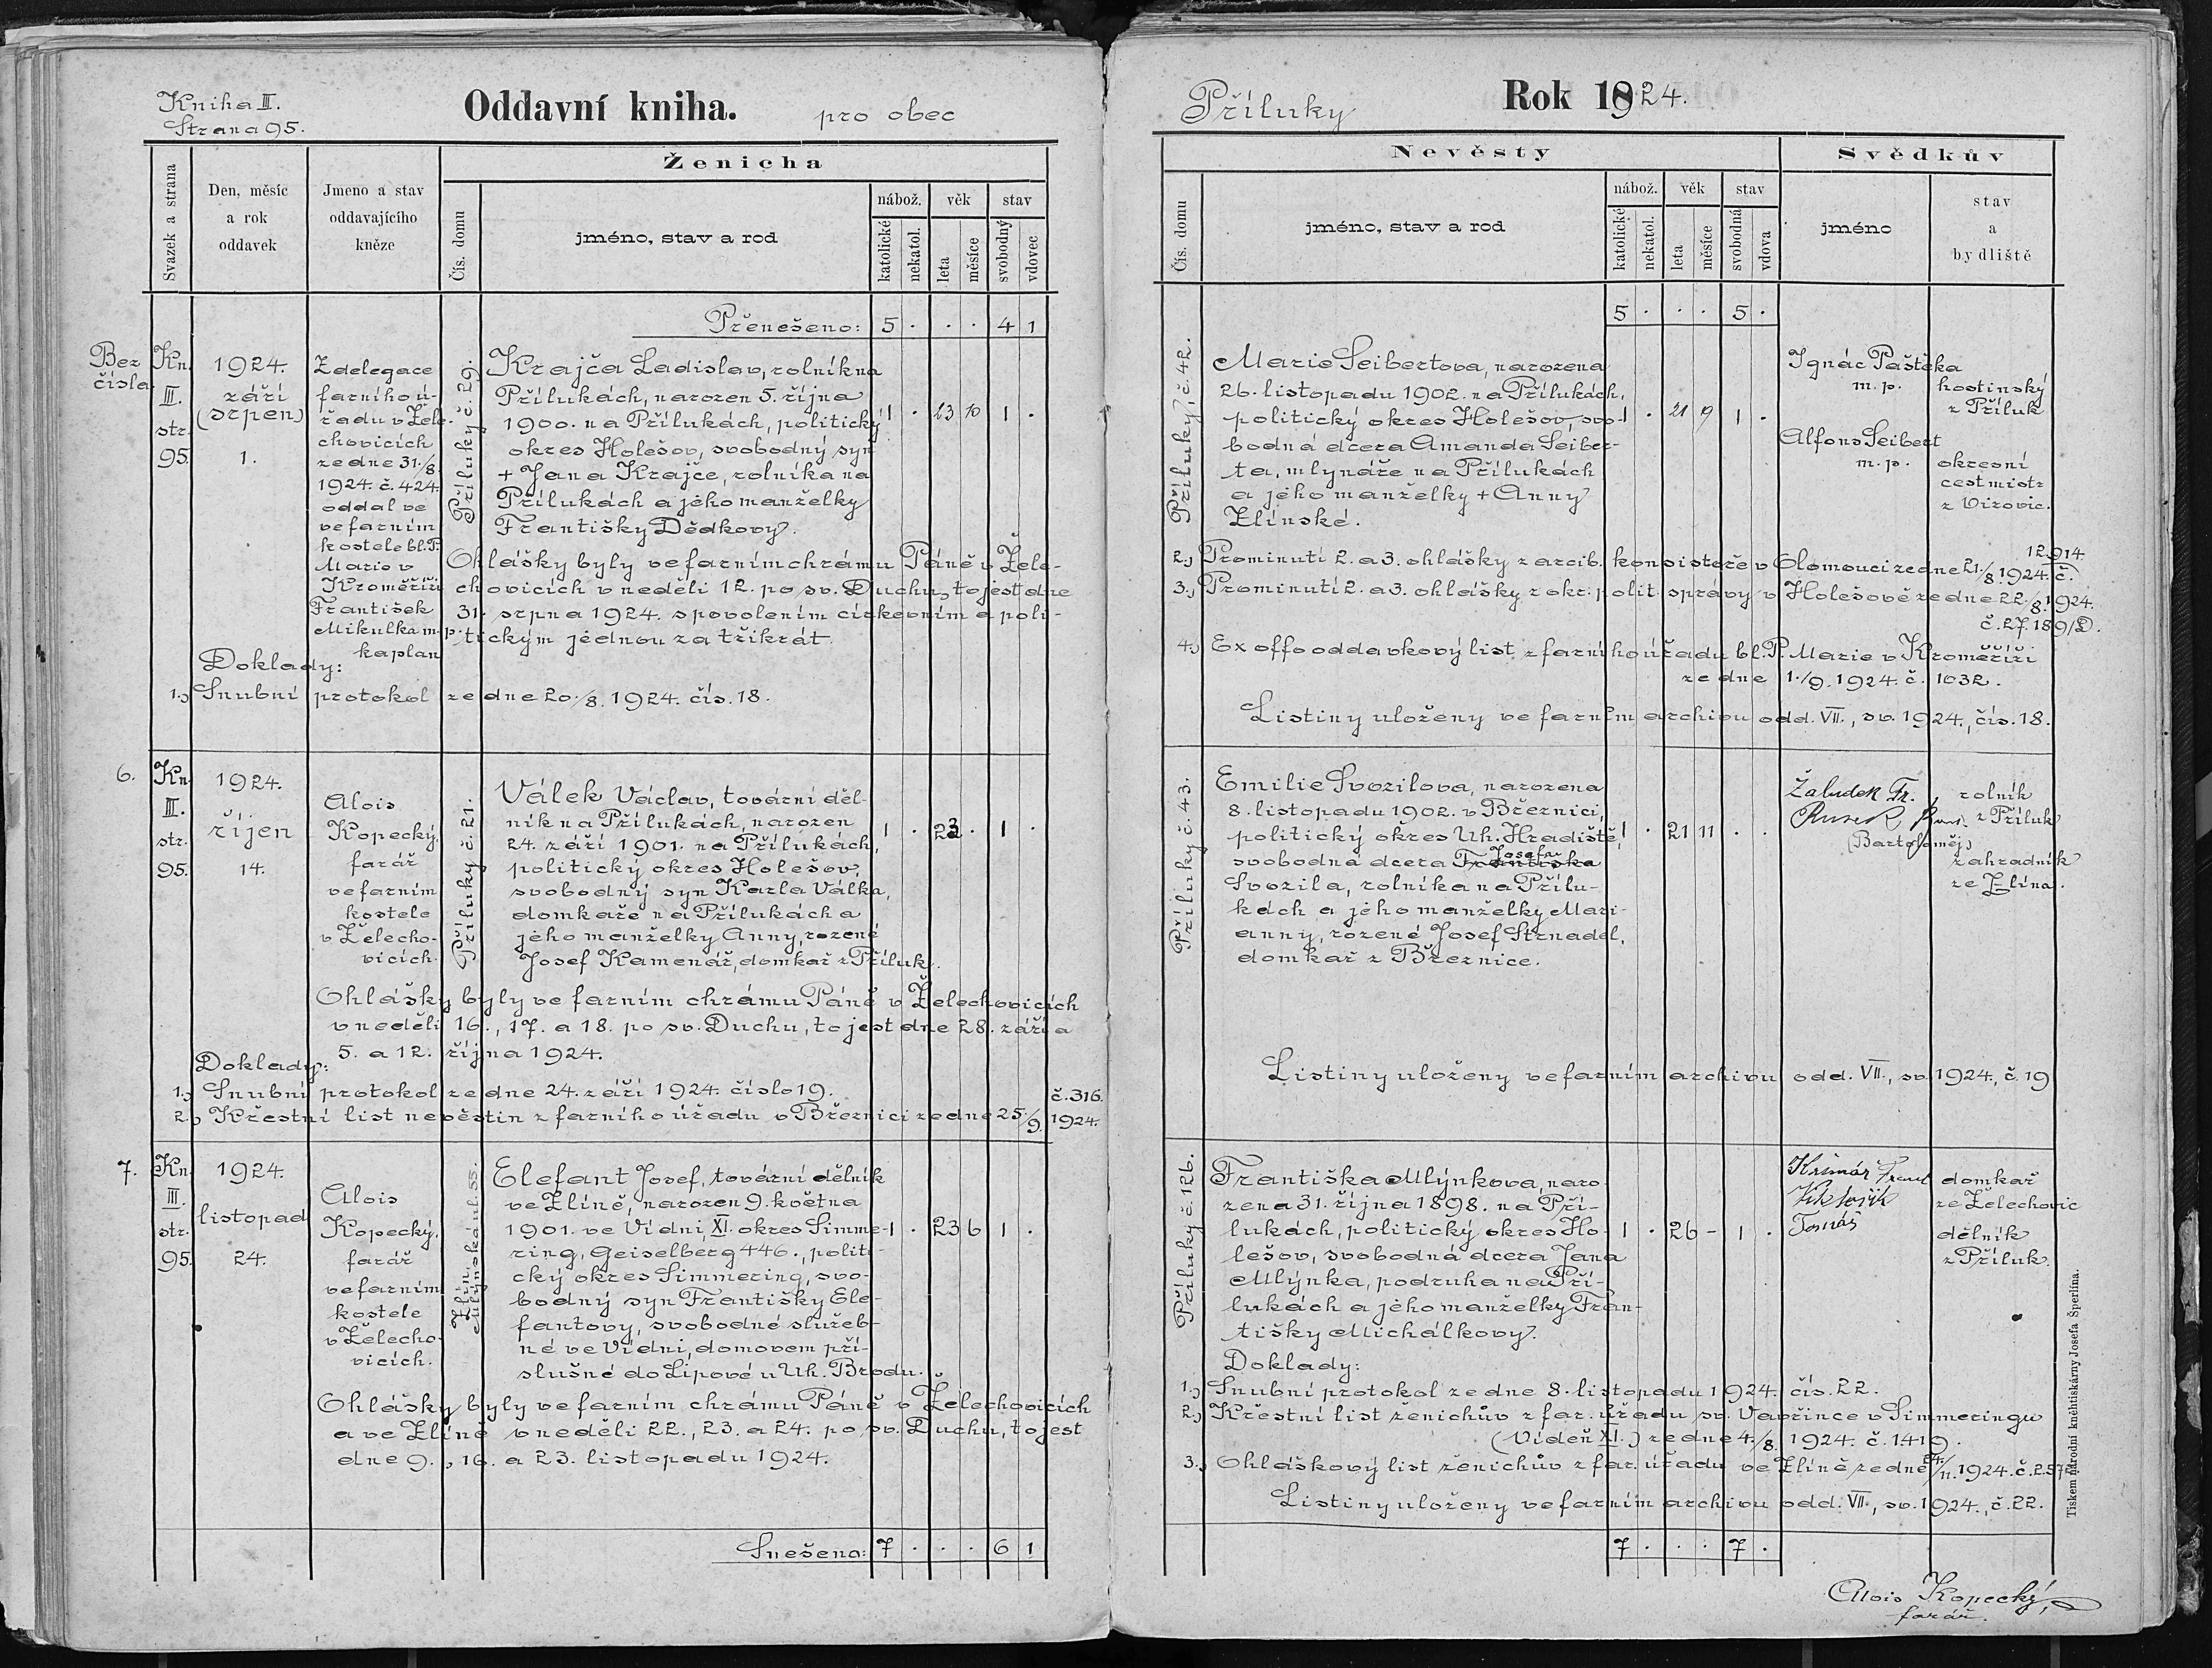 Kniha III.
Strana 95.
Oddavní kniha.
pro obec
Svazek a strana
Den, měsíc
a rok
oddavek
Jmeno a stav
oddavajícího
kněze
Ženicha
Čís. domu
jméno, stav a rod
nábož.
věk
stav
katolické
nekatol.
leta
měsíce
svobodný
vdovec
Přenešeno: 5 . . . 4 1
Bez
čísla.
Kn.
III.
str.
95.
1924.
září
(srpen)
1.
Z delegace
farního ú-
řadu v Žele-
chovicích
ze dne 31./8.
1924. č. 424.
oddal ve
ve farním
kostele bl. P.
Marie v
Kroměříži
František
Mikulka m.p.
kaplan
Příluky č. 29.
Krajča Ladislav, rolník na
Přílukách, narozen 5. října
1900. na Přílukách, politický
okres Holešov, svobodný syn
+ Jana Krajče, rolníka na
Přílukách a jeho manželky
Františky Dědkovy.
1 . 23 10 1 .
Ohlášky byly ve farním chrámu Páně v Žele-
chovicích v neděli 12. po sv. Duchu, to jest dne
31. srpna 1924. s povolením církevním a poli-
tickým jednou za třikrát.
Doklady:
1.) Snubní protokol ze dne 20./8. 1924. čís. 18.
6.
Kn.
III.
str.
95.
1924.
říjen
14.
Alois
Kopecký,
farář
ve farním
kostele
v Želecho-
vicích.
Příluky č. 21.
Válek Václav, tovární děl-
ník na Přílukách, narozen
24. září 1901. na Přílukách,
politický okres Holešov,
svobodný syn Karla Válka,
domkaře na Přílukách a
jeho manželky Anny, rozené
Josef Kamenář, domkař z Příluk.
1 . 23 . 1 .
Ohlášky byly ve farním chrámu Páně v Želechovicích
v neděli 16., 17. a 18. po sv. Duchu, to jest dne 28. září a
5. a 12. října 1924.
Doklady:
1.) Snubní protokol ze dne 24. září 1924. číslo 19.
2.) Křestní list nevěstin z farního úřadu v Březnici ze dne 25./9. 1924.
č. 316.
7.
Kn.
III.
str.
95.
1924.
listopad
24.
Alois
Kopecký,
farář
ve farním
kostele
v Želecho-
vicích.
Zlín.
Mlýnská ul. 55.
Elefant Josef, tovární dělník
ve Zlíně, narozen 9. května
1901. ve Vídni, XI. okres Simme-
ring, Geiselberg 446., politi-
cký okres Simmering, svo-
bodný syn Františky Ele-
fantovy, svobodné služeb-
né ve Vídni, domovem pří-
slušné do Lipové u Uh. Brodu.
1 . 23 6 1 .
Ohlášky byly ve farním chrámu Páně v Želechovicích
a ve Zlíně v neděli 22., 23. a 24. po sv. Duchu, to jest
dne 9., 16. a 23. listopadu 1924.
Snešeno: 7 . . . 6 1
Příluky
Rok 1924.
Nevěsty
Svědkův
Čís. domu
jméno, stav a rod
nábož.
věk
stav
katolické
nekatol.
leta
měsíce
svobodná
vdova
jméno
stav
a
bydliště
5 . . . 5 .
Příluky, č. 42.
Marie Seibertova, narozena
26. listopadu 1902. na Přílukách,
politický okres Holešov, svo-
bodná dcera Amanda Seiber-
ta, mlynáře na Přílukách
a jeho manželky + Anny
Zlínské.
1 . 21 9 1 .
Ignác Paštěka
m. p.
hostinský
z Příluk
Alfons Seibert
m. p.
okresní
cestmistr
z Vizovic.
2.) Prominutí 2. a 3. ohlášky z arcib. konsistoře v Olomouci ze dne 21./8. 1924. č.
12.914
3.) Prominutí 2. a 3. ohlášky z okr. polit. správy v Holešově ze dne 22./8. 1924.
č. 27.189/D.
4.) Ex offo oddavkový list z farního úřadu bl. P. Marie v Kroměříži
ze dne 1./9. 1924. č. 1032.
Listiny uloženy ve farním archivu odd. VII., sv. 1924., čís. 18.
Příluky č. 43.
Emilie Svozilova, narozena
8. listopadu 1902. v Březnici,
politický okres Uh. Hradiště,
svobodná dcera Františka
Josefa
Svozila, rolníka na Přílu-
kách a jeho manželky Mari-
anny, rozené Josef Strnadel,
domkař z Březnice.
1 . 21 11 . .
Žaludek Fr.
rolník
z Příluk
Rusek
(Bartoloměj)
zahradník
ze Zlína.
Listiny uloženy ve farním archivu odd. VII., sv. 1924., č. 19
Příluky č. 126.
Františka Mlýnkova, naro-
zena 31. října 1898. na Pří-
lukách, politický okres Ho-
lešov, svobodná dcera Jana
Mlýnka, podruha na Pří-
lukách a jeho manželky Fran-
tišky Michálkovy.
1 . 26 - 1 .
domkař
ze Želechovic
Tomáš
dělník
z Příluk.
Doklady:
1.) Snubní protokol ze dne 8. listopadu 1924. čís. 22.
2.) Křestní list ženichův z far. úřadu sv. Vavřince v Simmeringu
(Vídeň XI.) ze dne 4./8. 1924. č. 1419.
3.) Ohláškový list ženichův z far. úřadu ve Zlíně ze dne 24./11. 1924. č. 257
Listiny uloženy ve farním archivu odd. VII., sv. 1924., č. 22.
7 . . . 7 .
Alois Kopecký,
farář.
Tiskem národní kněhtiskárny Josefa Šperlína.